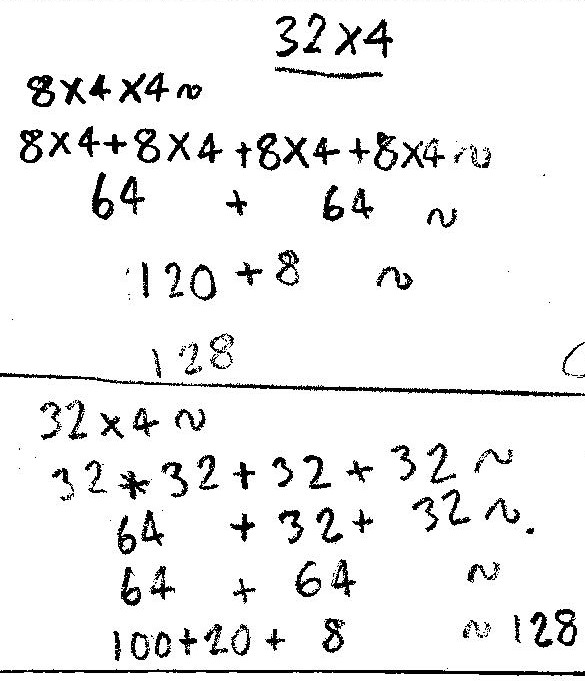 32×4
8×4×4~
8×4+8×4+8×4+8×4~
64 + 64 ~
120+8 ~
128
32×4~
32+32+32+32~
64 +32+ 32~.
64 + 64 ~
100+20+ 8 ~ 128